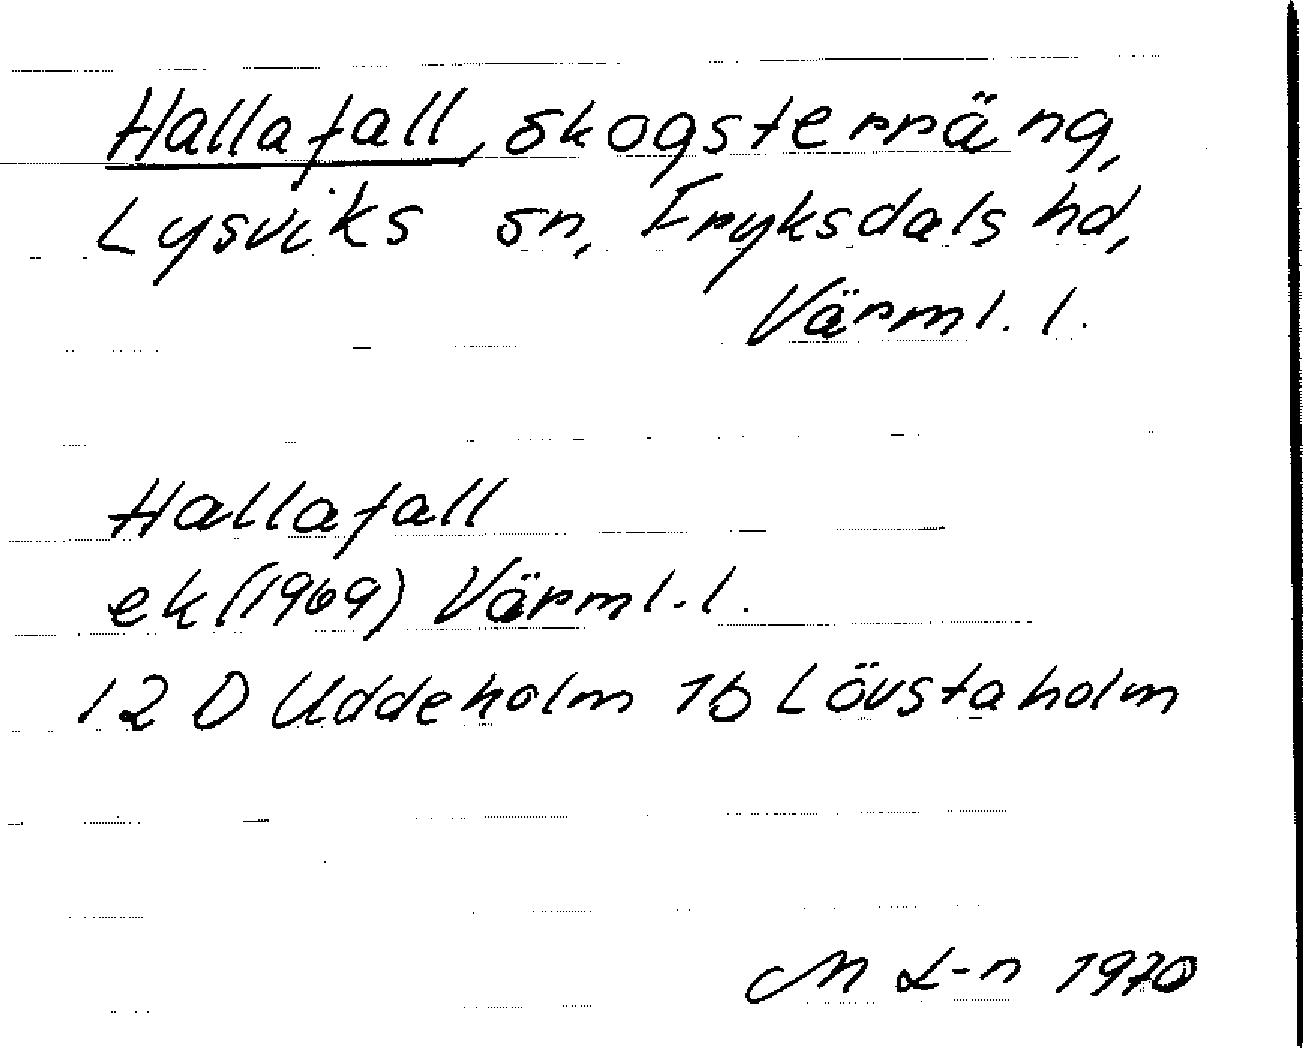 Hallafall, skogsterräng,
Lysviks sn, Fryksdals hd,
Värml. l.
Hallafall
ek (1969) Värml. l.
12 D Uddeholm 1b Lövstaholm
M L-n 1970